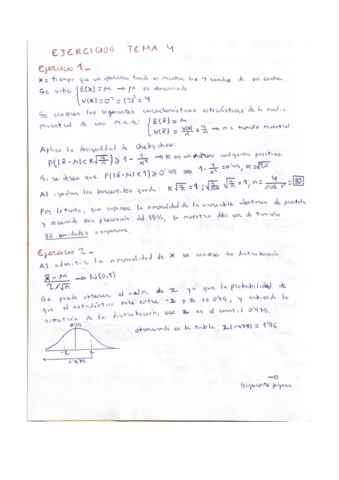 EJERCICIOS TEMA 4
Ejercicio 1_
X = tiempo que un operario tarda en montar las 4 ruedas de un coche.
Se sabe: { E(X) = M → M es desconocido
V(X) = σ² = (2)² = 4
Se conocen las siguientes características estadísticas de la media
muestral de una m.a.s: { E(x̄) = M
V(x̄) = V(x)/n = 4/n → n = tamaño muestral
Aplico la desigualdad de chebychev
P(|x̄-M| < K√(4/n)) ≥ 1 - 1/K² → K es un número cualquiera positivo
Si se desea que: P(|x̄-M| < 1) ≥ 0'95 ⇒ 1 - 1/K² = 0'95, K = √20
Al igualar los paréntesis queda: K√(4/n) = 1; n = 4/0'05 = 80
Por lo tanto, sin suponer la normalidad de la variable aleatoria de partida
y deseando esa precisión del 95%, la muestra debe ser de tamaño
80 unidades o superior.
Ejercicio 2_
Al admitir la normalidad de X se conoce su distribución
x̄ - M / 2/√n → N(0,1)
Se puede obtener el valor de z ya que la probabilidad de
que el estadístico esté entre -z y z es 0'95, y sabiendo la
simetría de la distribución, ese z es el cuantil 0'975.
observando en la tabla: z(0'975) = 1'96
-z z
0'975
Siguiente página